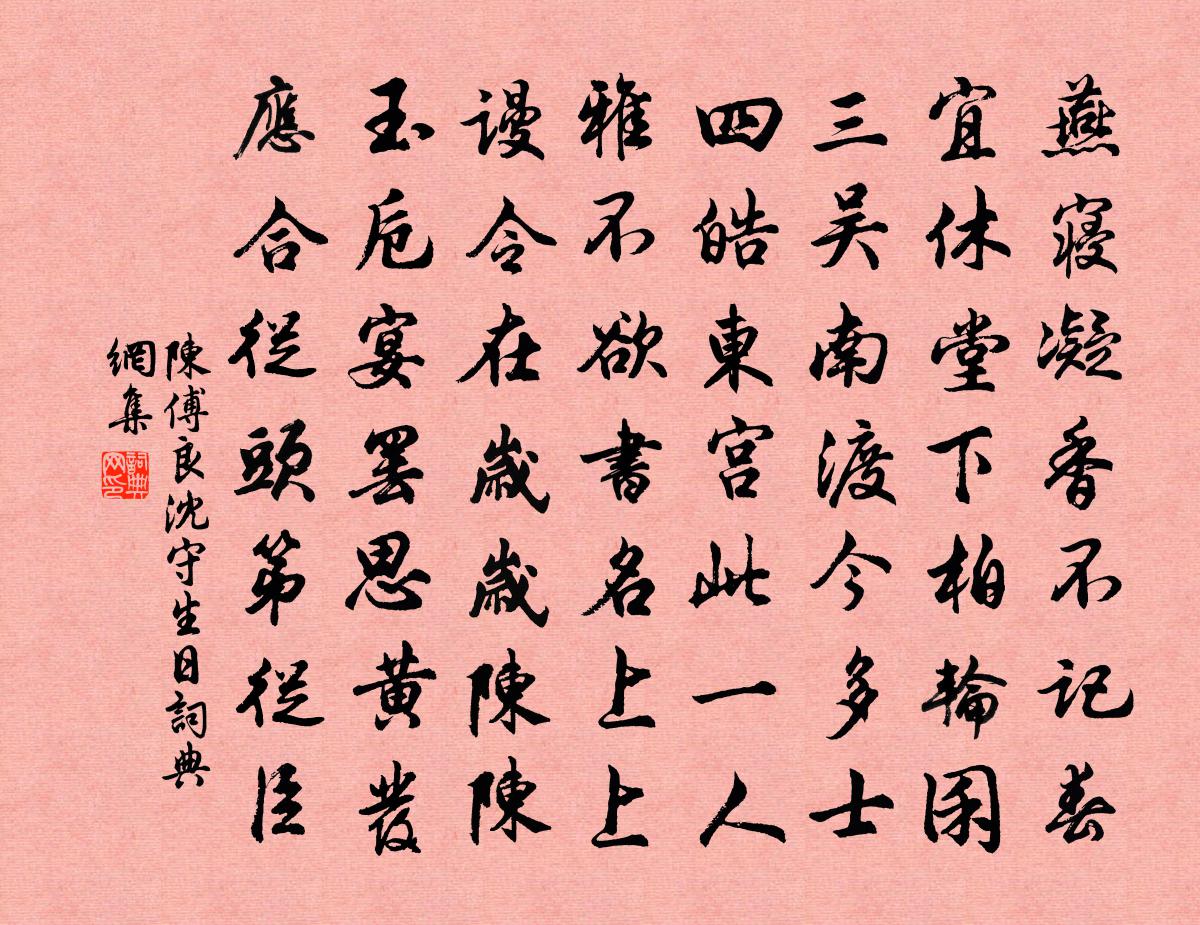 燕寢凝香不記春
宜休堂下柏輪囷
三吴南渡今多士
四皓東宫此一人
雅不欲書名上上
謾令在歲歲陳陳
玉卮宴罷思黄發
應合從頭第從臣
陳傅良沈守生日詞典
網集
詞典网印